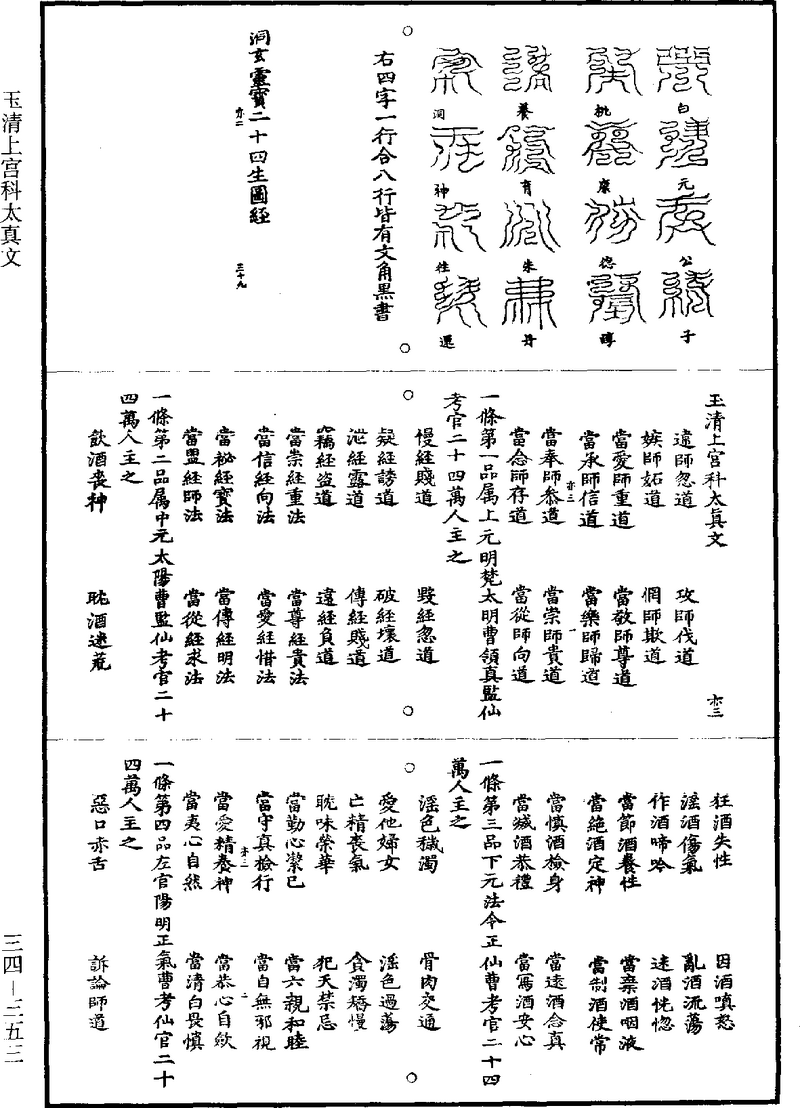 玉清上宮科太真文
三四－三五三
白元公子
桃康德醇
養育朱丹
洞神性還
右四字一行合八行皆有文角黑書
洞玄靈寶二十四生圖經
亦二
三十九
玉清上宮科太真文
亦三
違師忽道　攻師伐道
嫉師妬道　罔師欺道
當愛師重道　當敬師尊道
當承師信道　當樂師歸道
亦三　一
當奉師恭道　當崇師貴道
當念師存道　當從師向道
一條第一品屬上元明梵太明曹領真監仙
考官二十四萬人主之
慢經賤道　毀經忽道
疑經謗道　破經壞道
泄經露道　傳經賤道
竊經盜道　遠經負道
當崇經重法　當尊經貴法
當信經向法　當愛經惜法
當祕經寶法　當傳經明法
當盟經師法　當從經求法
一條第二品屬中元太陽曹監仙考官二十
四萬人主之
飲酒喪神　耽酒迷荒
狂酒失性　因酒嗔怒
淫酒傷氣　亂酒流蕩
作酒啼吟　迷酒恍惚
當節酒養性　當棄酒咽液
當絕酒定神　當制酒使常
當慎酒檢身　當遠酒念真
當減酒恭禮　當寫酒安心
一條第三品下元法令正仙曹考官二十四
萬人主之
淫色穢濁　骨肉交通
愛他婦女　淫色過蕩
亡精喪氣　貪濁矯慢
耽味榮華　犯天禁忌
當勤心潔己　當六親和睦
當守真檢行　當自無邪視
亦二　二
當愛精養神　當恭心自斂
當夷心自然　當清白畏慎
一條第四品左官陽明正氣曹考仙官二十
四萬人主之
惡口赤舌　訴論師道